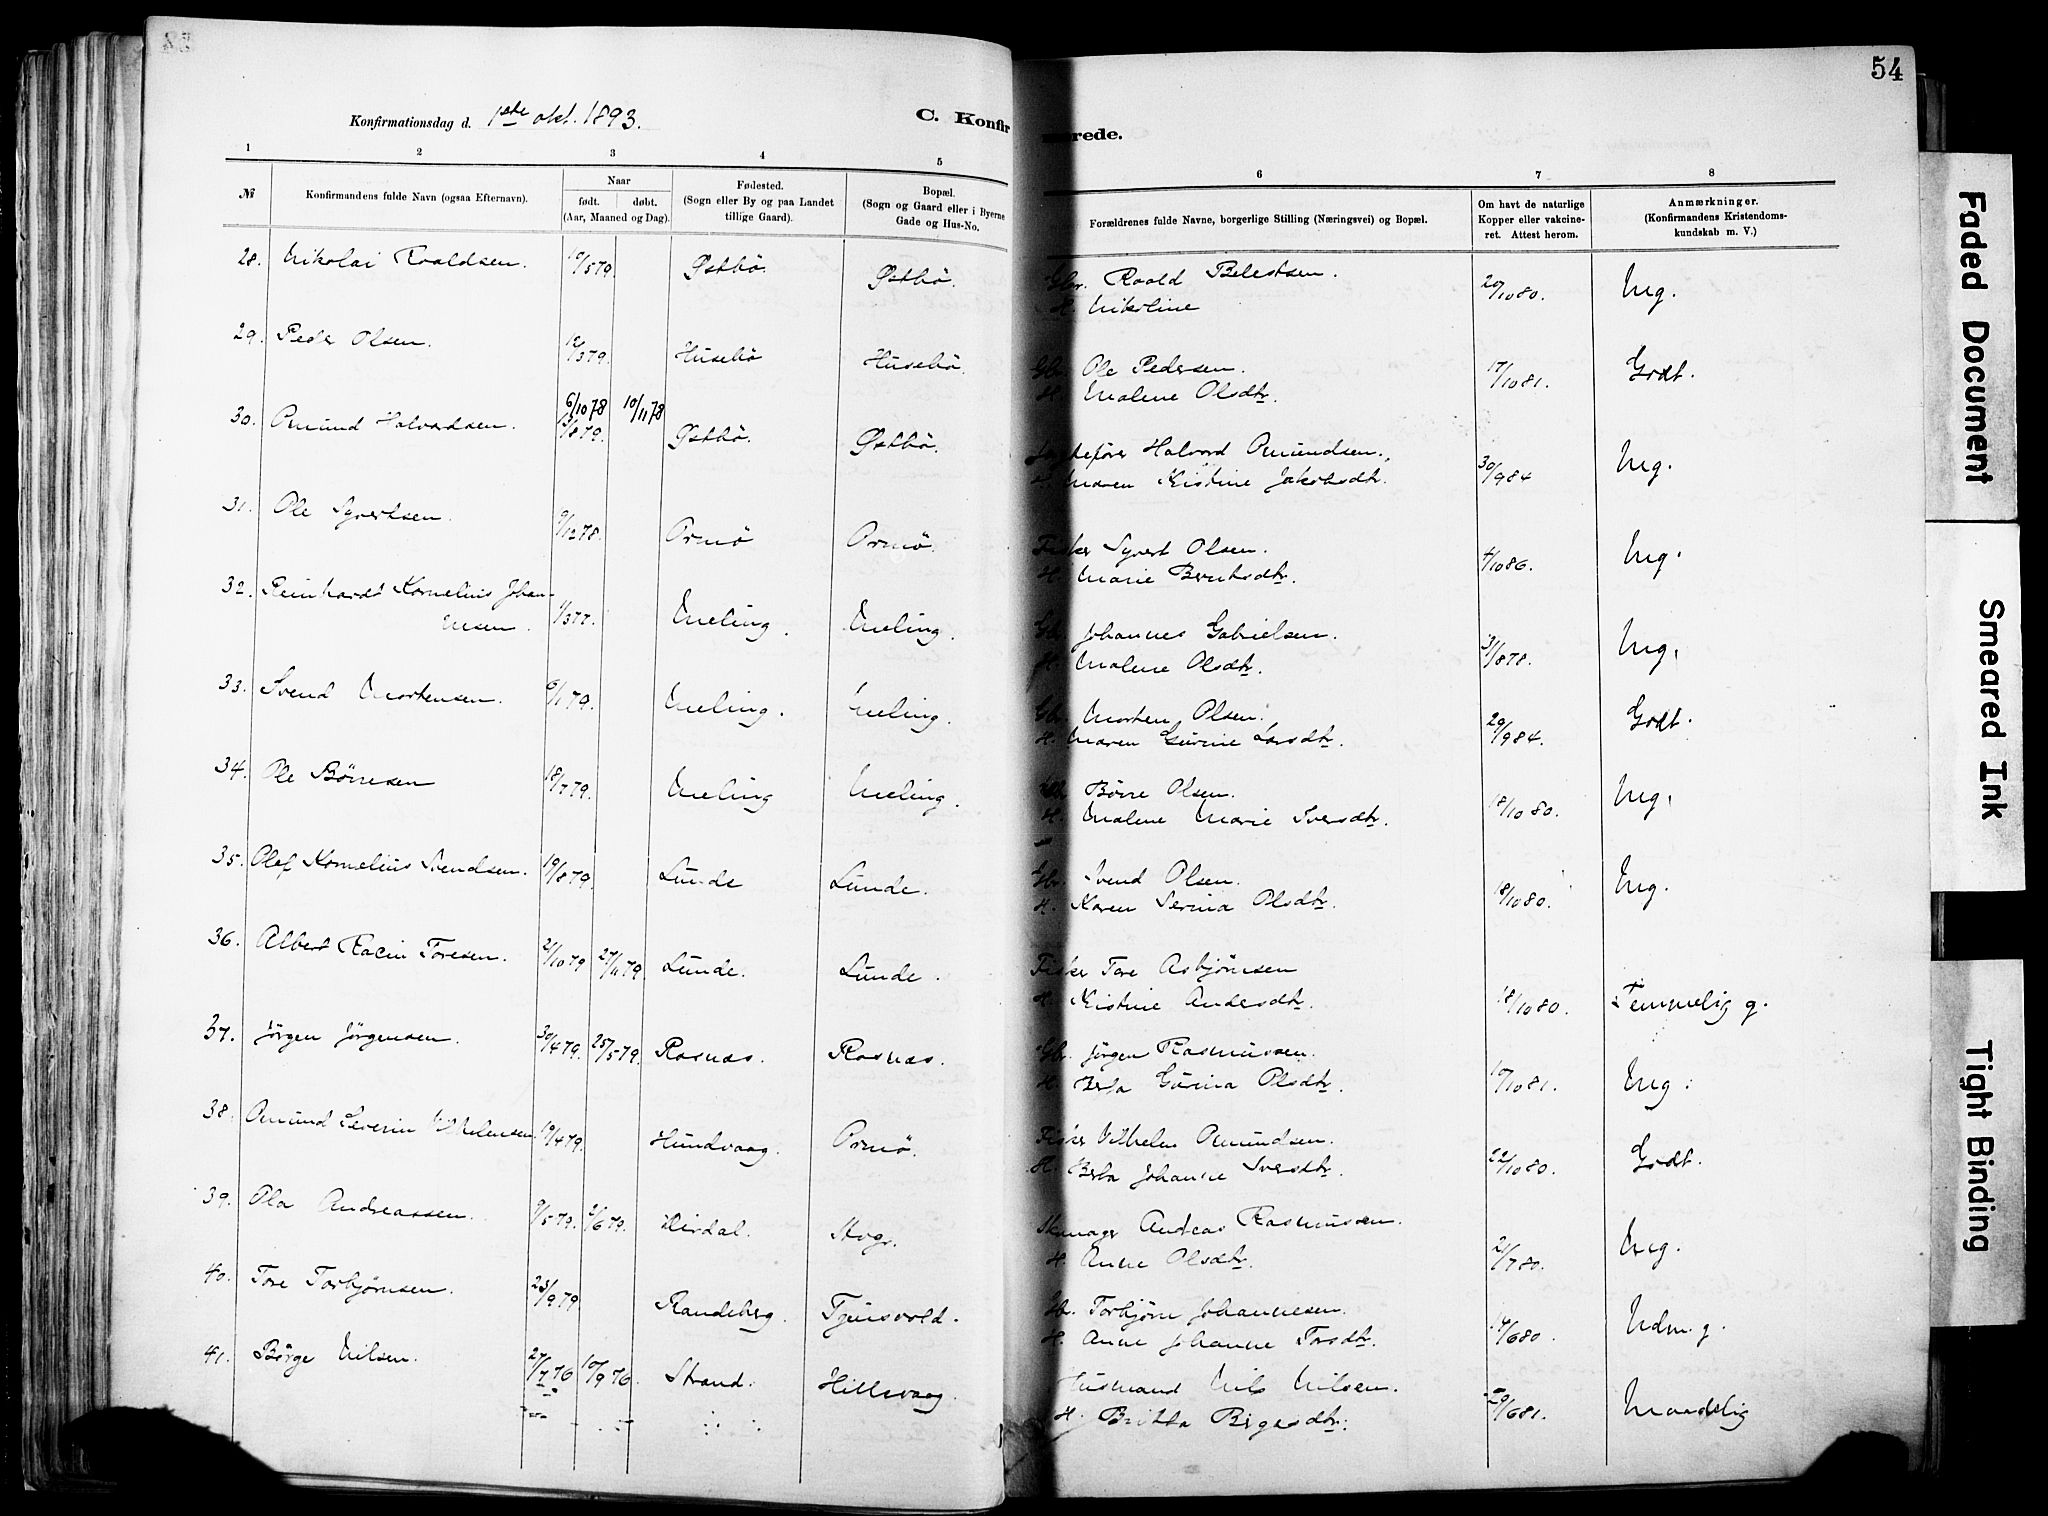 54
Konfirmationsdag d. 1ste okt. 1893.
C. Konfir
rede.
1 2 3 4 5 6 7 8
№
Konfirmandens fulde Navn (ogsaa Efternavn).
Naar
født. døbt.
(Aar, Maaned og Dag).
Fødested.
(Sogn eller By og paa Landet
tillige Gaard).
Bopæl.
(Sogn og Gaard eller i Byerne
Gade og Hus-No.
Forældrenes fulde Navne, borgerlige Stilling (Næringsvei) og Bopæl.
Om havt de naturlige
Kopper eller vakcine-
ret. Attest herom.
Anmærkninger.
(Konfirmandens Kristendoms-
kundskab m. V.)
28. Nikolai Roaldsen. 10/5 79. Østbö. Østbö. Gbr. Roald 20/10 80. Mg.
H. Nikoline
29. Peder Olsen. 12/3 79. Husebö Husebö. Gbr. Ole Pedersen. 17/10 81. Godt.
H. Malene Olsdtr.
6/10 78 10/11 78
30. Amund Halvordsen. 13/8 79. Østbö. Østbö. Halvord Amundsen. 30/9 84 Mg.
H. Maren Kistine Jakobsdtr.
31. Ole Syvertsen. 9/12 78. Ormö Ormö. Fisker Syvert Olsen. 4/10 86. Mg.
H. Marie Berntsdtr.
32. Reinhardt Kornelius Johan-
nesen. 1/3 77. Meling. Meling. Gbr. Johannes Gabrielsen. 31/8 78. Mg.
H. Malene Olsdtr.
33. Svend Mortensen. 6/1 79. Meling. Meling. Gbr. Morten Olsen. 29/9 84. Godt.
H. Maren Gurine Larsdtr.
34. Ole Börresen 18/7 79. Meling Meling. Börre Olsen. 18/10 80. Mg.
H. Malene Marie Iversdtr.
35. Olef Kornelius Svendsen. 19/8 79. Lunde Lunde. Gbr. Svend Olsen. 18/10 80. Mg.
H. Karen Serina Olsdtr.
36. Albert Racin Toresen. 21/10 79 27/11 79. Lunde. Lunde. Fisker Tore Asbjörnsen
H. Kistine Andersdtr. 18/10 80. Temmelig g.
37. Jörgen Jörgensen. 30/4 79. 25/5 79. Rosnæs. Rosnæs. Gbr. Jörgen Rasmussen.
H. Berta Gurina Olsdtr. 10/10 81. Mg.
38. Amund Severin Vilhelmsen 19/4 79. Hundvaag. Ormö. Fisker Vilhelm Amundsen.
H. Berta Johanne Iversdtr. 22/10 80. Godt.
39. Ola Andreassen. 9/5 79. 2/6 79. Dirdal. Stvgr. Andreas Rasmussen.
H. Anne Olsdtr. 21/7 80. Mg.
40. Tore Torbjörnsen. 23/9 79. Randeberg. Tjensvold. Gbr. Torbjörn Johannesen.
H. Anne Johanne Torsdtr. 14/6 80. Udm. g.
41. Börge Nilsen. 27/7 76 10/9 76. Strand. Hillevaag. Husmand Nils Nilsen.
H. Britta Birgesdtr. 29/6 81. Maadelig
Faded Document
Smeared Ink
Tight Binding